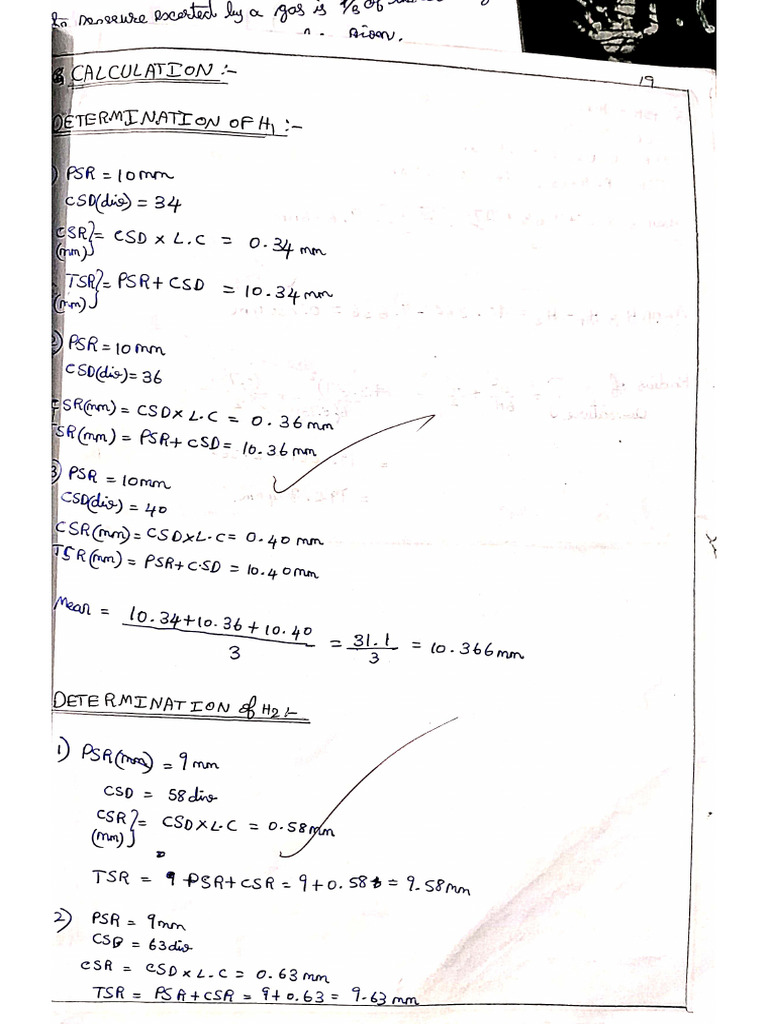 pressure exerted by a gas is 1/3 of
CALCULATION :-
19
DETERMINATION OF H1 :-
1) PSR = 10mm
CSD(div) = 34
CSR(mm) } = CSD x L.C = 0.34 mm
TSR(mm) } = PSR + CSD = 10.34 mm
2) PSR = 10 mm
CSD(div) = 36
CSR(mm) = CSD x L.C = 0.36 mm
TSR(mm) = PSR + CSD = 10.36 mm
3) PSR = 10mm
CSD(div) = 40
CSR(mm) = CSD x L.C = 0.40 mm
TSR(mm) = PSR + C.SD = 10.40 mm
Mean = 10.34+10.36+10.40 / 3 = 31.1 / 3 = 10.366 mm
DETERMINATION of H2 :-
1) PSR(mm) = 9 mm
CSD = 58 div
CSR(mm) } = CSD x L.C = 0.58 mm
TSR = PSR + CSR = 9 + 0.58 = 9.58 mm
2) PSR = 9mm
CSD = 63 div
CSR = CSD x L.C = 0.63 mm
TSR = PSR + CSR = 9 + 0.63 = 9.63 mm